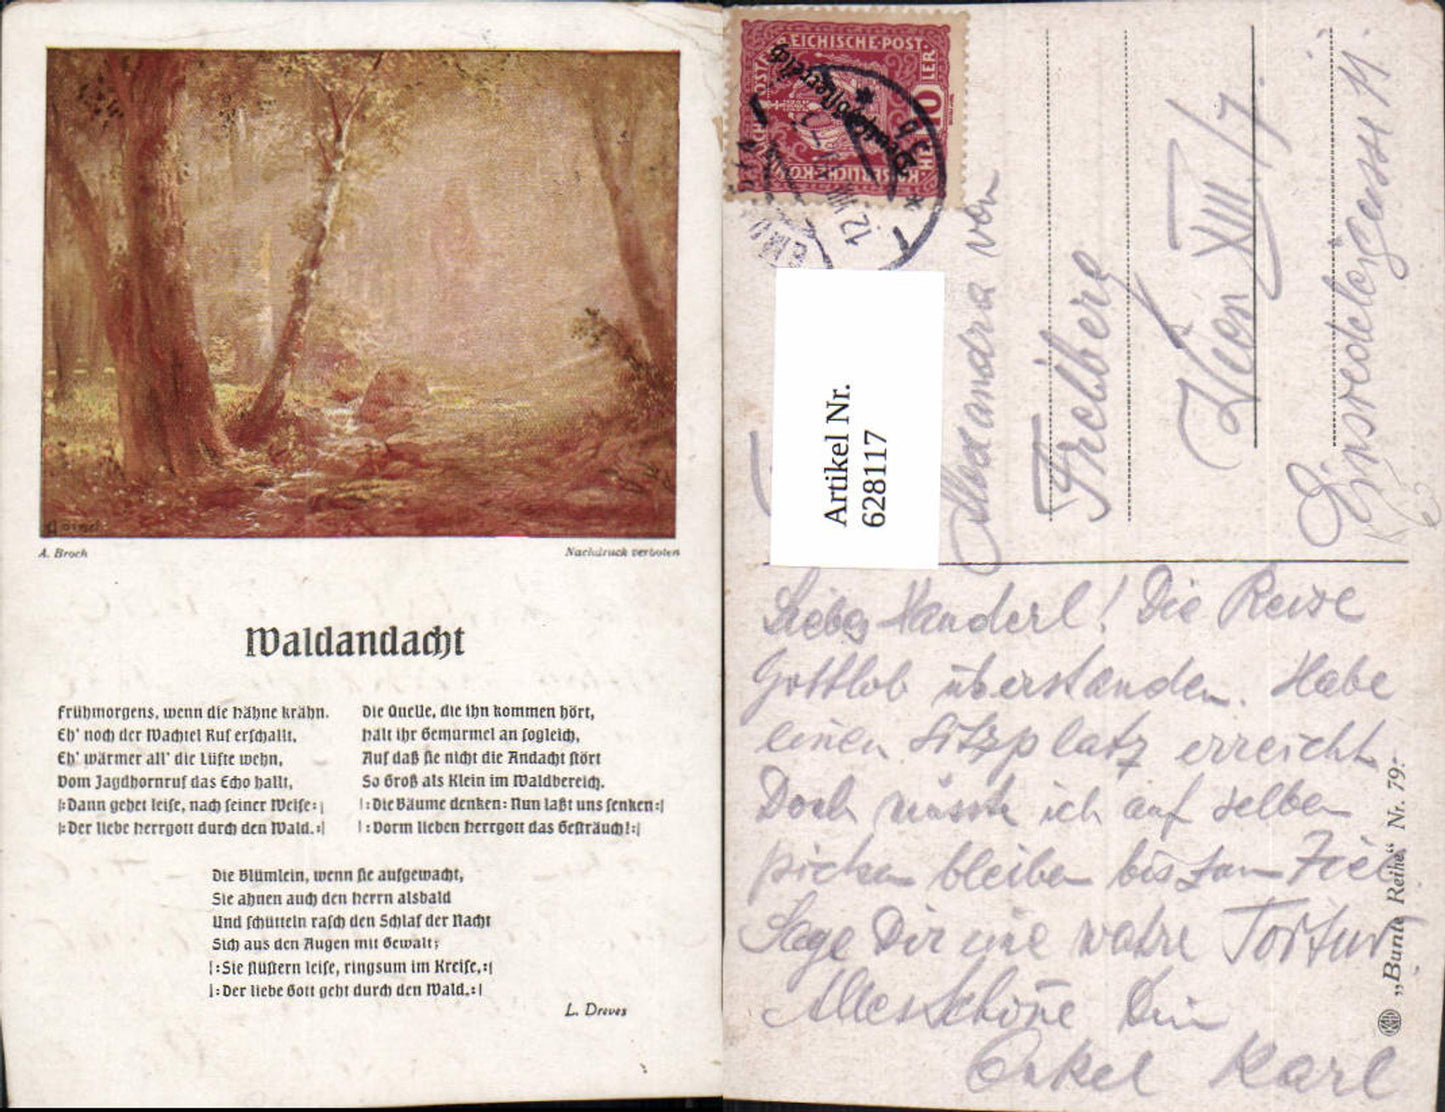 A. Broch
Nachdruck verboten
Waldandacht
Frühmorgens, wenn die Hähne krähn.
Eh' noch der Wachtel Ruf erschallt,
Eh' wärmer all' die Lüfte wehn,
Vom Jagdhornruf das Echo hallt,
|:Dann gehet leise, nach seiner Weise:|
|:Der liebe Herrgott durch den Wald.:|
Die Quelle, die ihn kommen hört,
Hält ihr Gemurmel an sogleich,
Auf daß sie nicht die Andacht stört
So Groß als Klein im Waldbereich.
|:Die Bäume denken: Nun laßt uns senken:|
|:Vorm lieben Herrgott das Gesträuch!:|
Die Blümlein, wenn sie aufgewacht,
Sie ahnen auch den Herrn alsbald
Und schütteln rasch den Schlaf der Nacht
Sich aus den Augen mit Gewalt;
|:Sie flüstern leise, ringsum im Kreise,:|
|:Der liebe Gott geht durch den Wald.:|
L. Dreves
EICHISCHE·POST
HELLER
KAISERLICHE·KÖN
Deutschösterreich
12 VII
Artikel Nr.
628117
Alexandra von
Freiberg
Wien XIII/7
Einsiedelergasse 11.
Liebes Handerl! Die Reise
Gottlob überstanden. Habe
einen Sitzplatz erreicht.
Doch musste ich auf selben
picken bleiben bis zum Ziel
Sage Dir eine wahre Tortur
Alles Schöne Dein
Onkel Karl
„Bunte Reihe" Nr. 79.